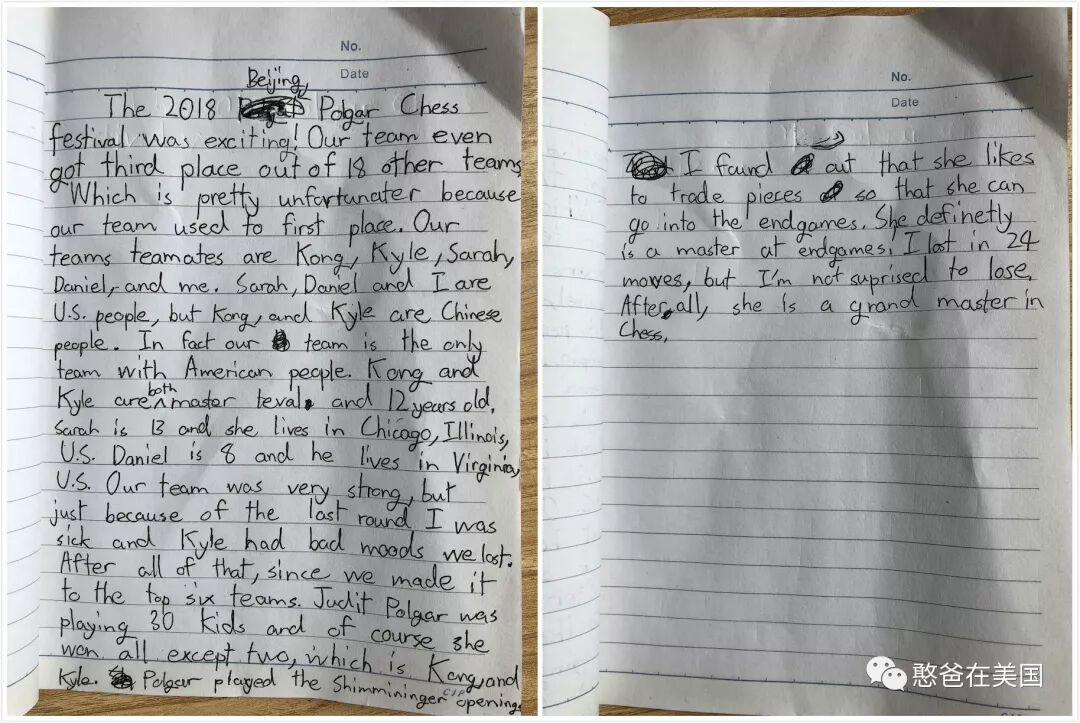 No.
Date
Beijing,
The 2018 Polgar Chess
festival was exciting! Our team even
got third place out of 18 other teams
Which is pretty unfortunater because
our team used to first place. Our
teams teamates are Kong, Kyle, Sarah,
Daniel, and me. Sarah, Daniel and I are
U.S. people, but Kong, and Kyle are Chinese
people. In fact our team is the only
team with American people. Kong and
both
Kyle are master leval. and 12 years old.
Sarah is 13 and she lives in Chicago, Illinois,
U.S. Daniel is 8 and he lives in Virginia,
U.S. Our team was very strong, but
just because of the last round I was
sick and Kyle had bad moods we lost.
After all of that, since we made it
to the top six teams. Judit Polgar was
playing 30 kids and of course she
won all except two, which is Kong, and
Kyle. Polgar played the Shimmininger openings
No.
Date
I found out that she likes
to trade pieces so that she can
go into the endgames. She definetly
is a master at endgames. I lost in 24
moves, but I'm not suprised to lose.
After all, she is a grand master in
Chess.
憨爸在美国